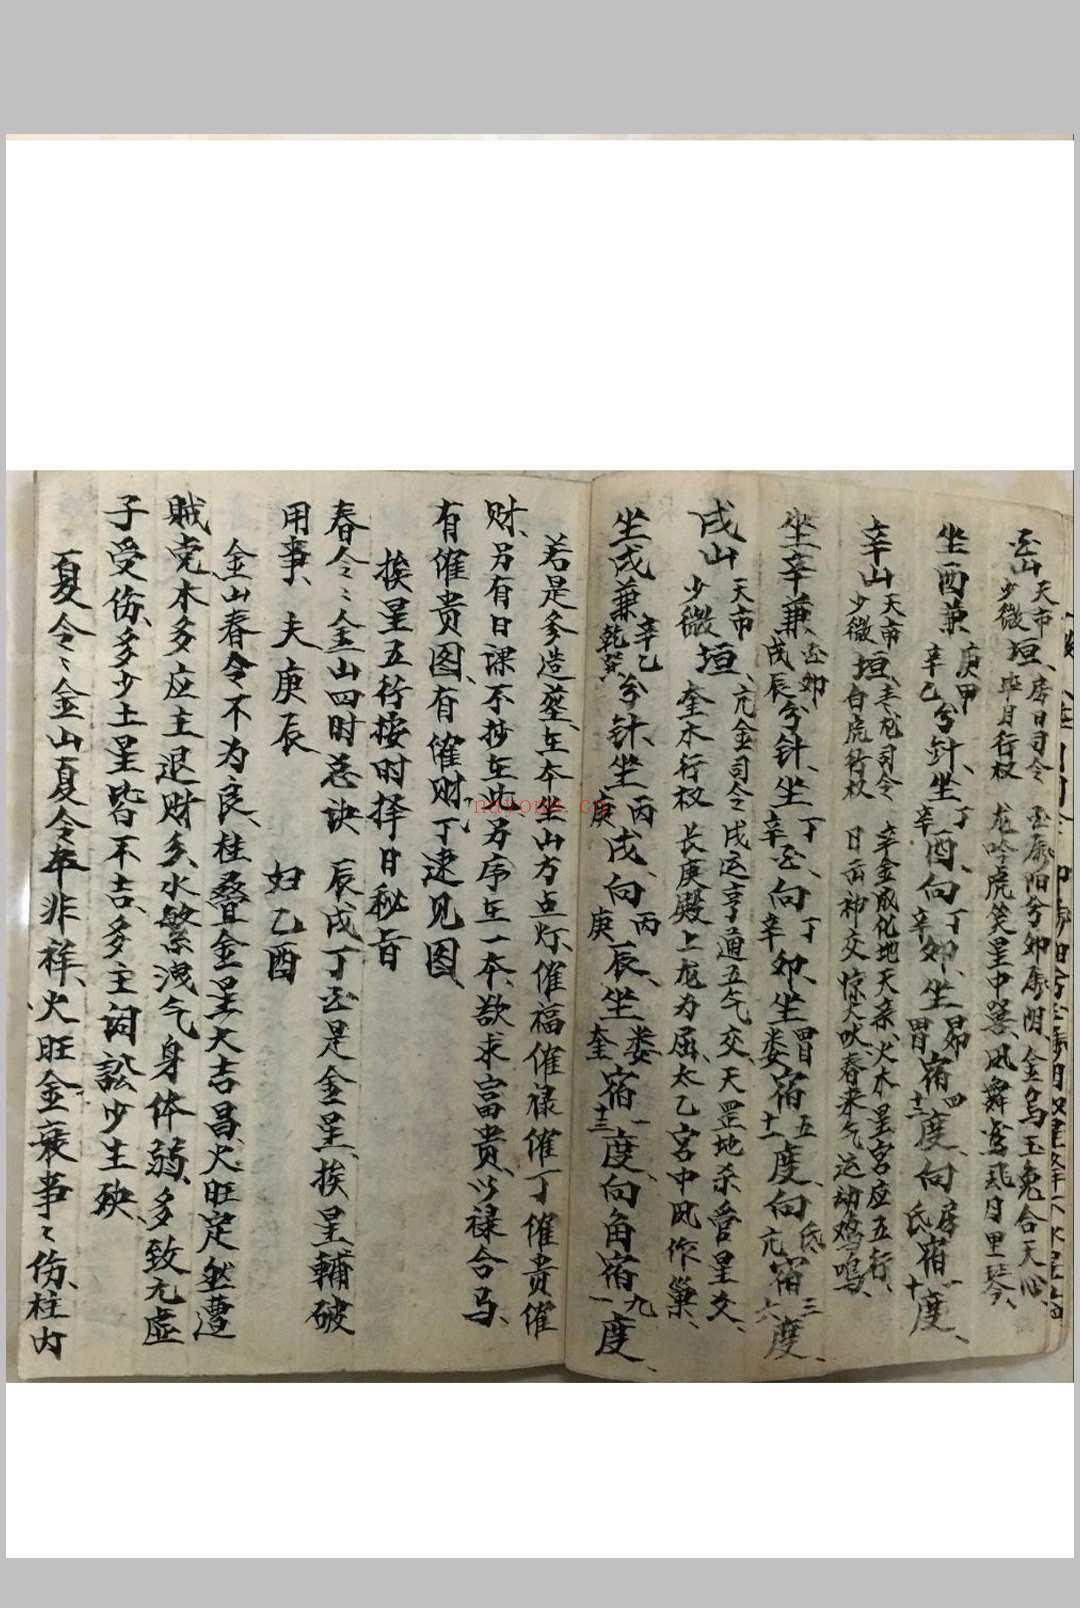 酉山 天市 少微 垣、房日司令 毕月行权 酉属阳兮卯属阴、金乌玉兔合天心、龙吟虎笑星中器、凤舞鸾飞月里琴、
坐酉兼 庚甲 辛乙 分针、坐 丁 辛 酉、向 丁 辛 卯、坐 昴 胃 宿 四 十三 度、向 房 氐 宿 一 十 度、
辛山 天市 少微 垣、青龙司令 白虎行权 辛金成化地天亲、火木星宫应五行、日岳神交惊犬吠 春来气运动鸡鸣、
坐辛兼 酉卯 戌辰 兮针、坐 丁 辛 酉 向 丁 辛 卯、坐 胃 娄 宿 五 十一 度、向 氐 亢 宿 三 六 度、
戌山 天市 少微 垣、亢金司令 奎木行权 戌运亨通五气交、天罡地杀、营星交、长庚殿上龙为屈、太乙宫中凤作巢、
坐戌兼 辛乙 乾巽 兮针、坐 丙 庚 戌、向 丙 庚 辰、坐 娄 奎 宿 一 十三 度、向角宿 九 一 度、
若是参造葬、在本坐山方点灯、催福催禄催丁催贵催
财、另有日课不抄在此另序在一本、欲求富贵、以禄合马、
有催贵图、有催财、丁逮见图、
挨星五行按时择日秘旨
春令〻金山四时总诀 辰戌丁酉是金星、挨星辅破
用事、 夫庚辰 妇乙酉
金山春令不为良、柱叠金星大吉昌、火旺定然遭
贼克木多应主退财多、水繁洩气身体弱、多致元虚
子受伤、多少土星皆不吉、多主词讼少主殃、
夏令〻金山夏令年非祥、火旺金衰事〻伤、柱内